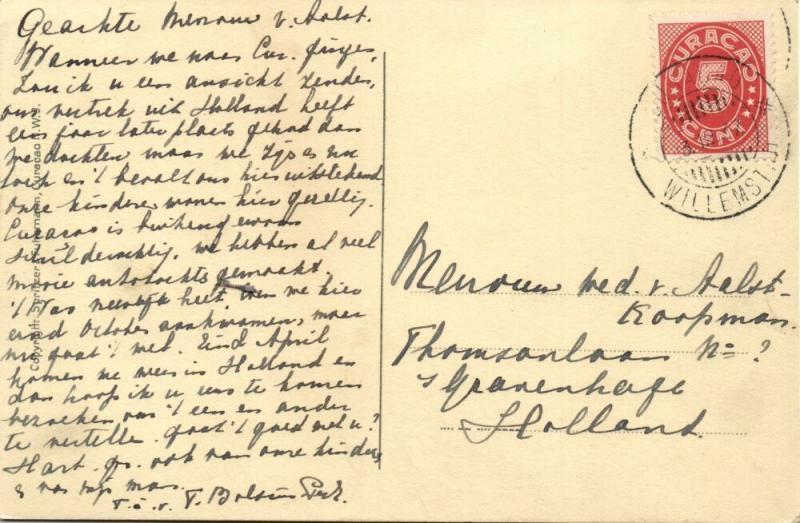 Geachte Mevrouw v. Aalst.
Wanneer we naar Cur. gingen,
Zou ik u een ansicht zenden,
ons vertrek uit Holland heeft
een jaar later plaats gehad dan
we dachten maar we zijn nu
toch en 't bevalt ons hier uitstekend
onze kinderen wonen hier gezellig.
Curacao is buitengewoon
schilderachtig, we hebben al veel
mooie autotochten gemaakt.
't Was heet, toen we hier
eind October aankwamen, maar
nu gaat 't wel. Eind April
komen we weer in Holland en
dan hoop ik u eens te komen
bezoeken om 't een en ander
te vertellen. gaat 't goed met u?
Hart. gr. ook van onze kinderen
en van mijn man.
T. à. v. T.
Copyright: Spritzer & Fuhrmann, Curacao N.W.I.
CURACAO
5
CENT
WILLEMSTAD
Mevrouw wed. v. Aalst-
Koopman.
Thomsonlaan No= ?
s Gravenhage
Holland.